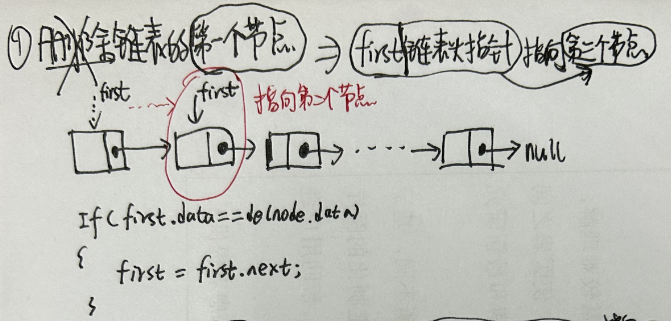 ① 删除链表的第一个节点 ⇒ first 链表头指针 指向第二个节点
first first 指向第二个节点
null
If ( first.data==delnode.data)
{
first = first.next;
}